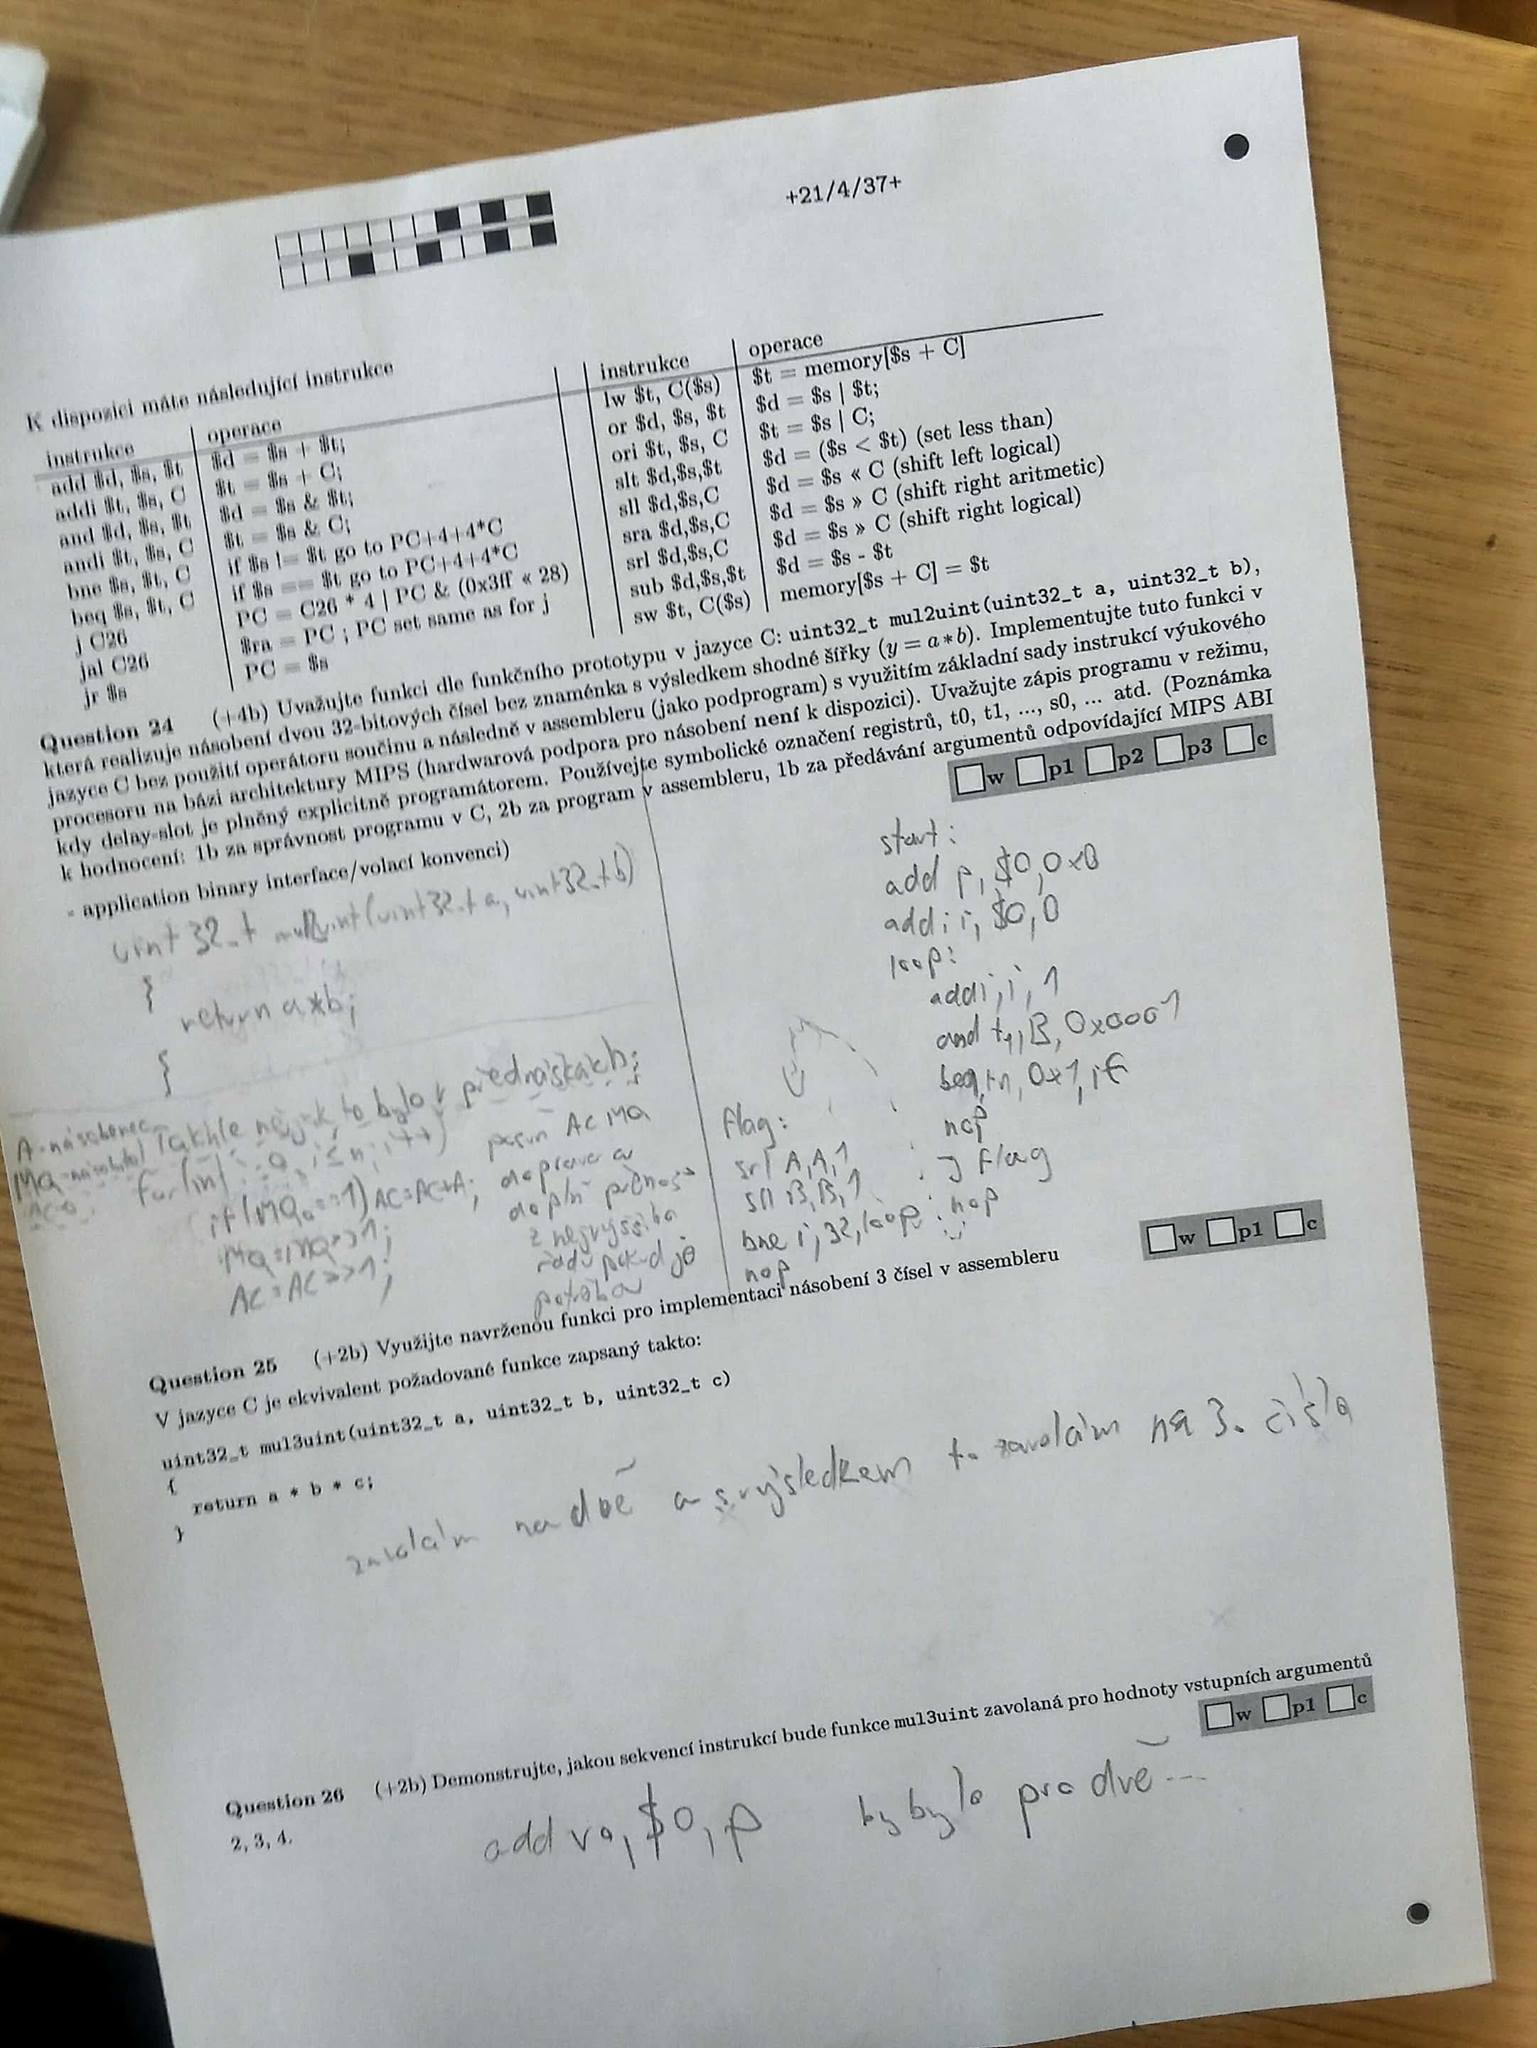 +21/4/37+
K dispozici máte následující instrukce
instrukce | operace
add $d, $s, $t | $d = $s + $t;
addi $t, $s, C | $t = $s + C;
and $d, $s, $t | $d = $s & $t;
andi $t, $s, C | $t = $s & C;
bne $s, $t, C | if $s != $t go to PC+4+4*C
beq $s, $t, C | if $s == $t go to PC+4+4*C
j C26 | PC = C26 * 4 | PC & (0x3ff « 28)
jal C26 | $ra = PC ; PC set same as for j
jr $s | PC = $s
instrukce | operace
lw $t, C($s) | $t = memory[$s + C]
or $d, $s, $t | $d = $s | $t;
ori $t, $s, C | $t = $s | C;
slt $d,$s,$t | $d = ($s < $t) (set less than)
sll $d,$s,C | $d = $s « C (shift left logical)
sra $d,$s,C | $d = $s » C (shift right aritmetic)
srl $d,$s,C | $d = $s » C (shift right logical)
sub $d,$s,$t | $d = $s - $t
sw $t, C($s) | memory[$s + C] = $t
Question 24 (+4b) Uvažujte funkci dle funkčního prototypu v jazyce C: uint32_t mul2uint(uint32_t a, uint32_t b),
která realizuje násobení dvou 32-bitových čísel bez znaménka s výsledkem shodné šířky (y = a * b). Implementujte tuto funkci v
jazyce C bez použití operátoru součinu a následně v assembleru (jako podprogram) s využitím základní sady instrukcí výukového
procesoru na bázi architektury MIPS (hardwarová podpora pro násobení není k dispozici). Uvažujte zápis programu v režimu,
kdy delay-slot je plněný explicitně programátorem. Používejte symbolické označení registrů, t0, t1, ..., s0, ... atd. (Poznámka
k hodnocení: 1b za správnost programu v C, 2b za program v assembleru, 1b za předávání argumentů odpovídající MIPS ABI
- application binary interface/volací konvenci)
w p1 p2 p3 c
uint 32_t mul2uint(uint32_t a, uint32_t b)
{
return a*b;
}
A-násobenec
MQ-násobitel takhle nějak to bylo v přednáškách:
AC=0 for(int i=0, i≤n; i++)
if(MQ₀==1) AC=AC+A;
MQ=MQ>>1;
AC=AC>>1;
posun AC MQ
doprava a
doplň přenos
z nejvyššího
řádu pokud je
potřeba
start:
add p, $0, 0x0
addi i, $0, 0
loop:
addi, i, 1
and t1, B, 0x0001
beq, t1, 0x1, if
nop
j flag
nop
flag:
srl A, A, 1
sll B, B, 1
bne i, 32, loop
nop
w p1 c
Question 25 (+2b) Využijte navrženou funkci pro implementaci násobení 3 čísel v assembleru
V jazyce C je ekvivalent požadované funkce zapsaný takto:
uint32_t mul3uint(uint32_t a, uint32_t b, uint32_t c)
{
return a * b * c;
}
zavolám na dvě a s výsledkem to zavolám na 3. čísla
Question 26 (+2b) Demonstrujte, jakou sekvencí instrukcí bude funkce mul3uint zavolaná pro hodnoty vstupních argumentů
2, 3, 4.
w p1 c
add v0, $0, p by bylo pro dvě...